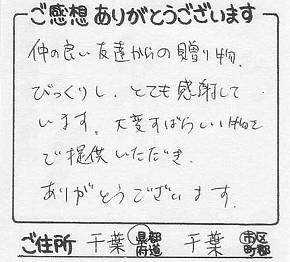 ご感想ありがとうございます
仲の良い友達からの贈り物。
びっくりし、とても感謝して
います。大変すばらしい物を
ご提供いただき、
ありがとうございます。
ご住所 千葉 県都府道 千葉 市区町郡